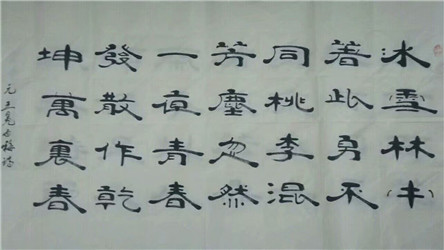 冰雪林
著此身不
同桃李混
芳塵忽然
一夜青春
發散作乾
坤萬裏春
元 王冕 梅